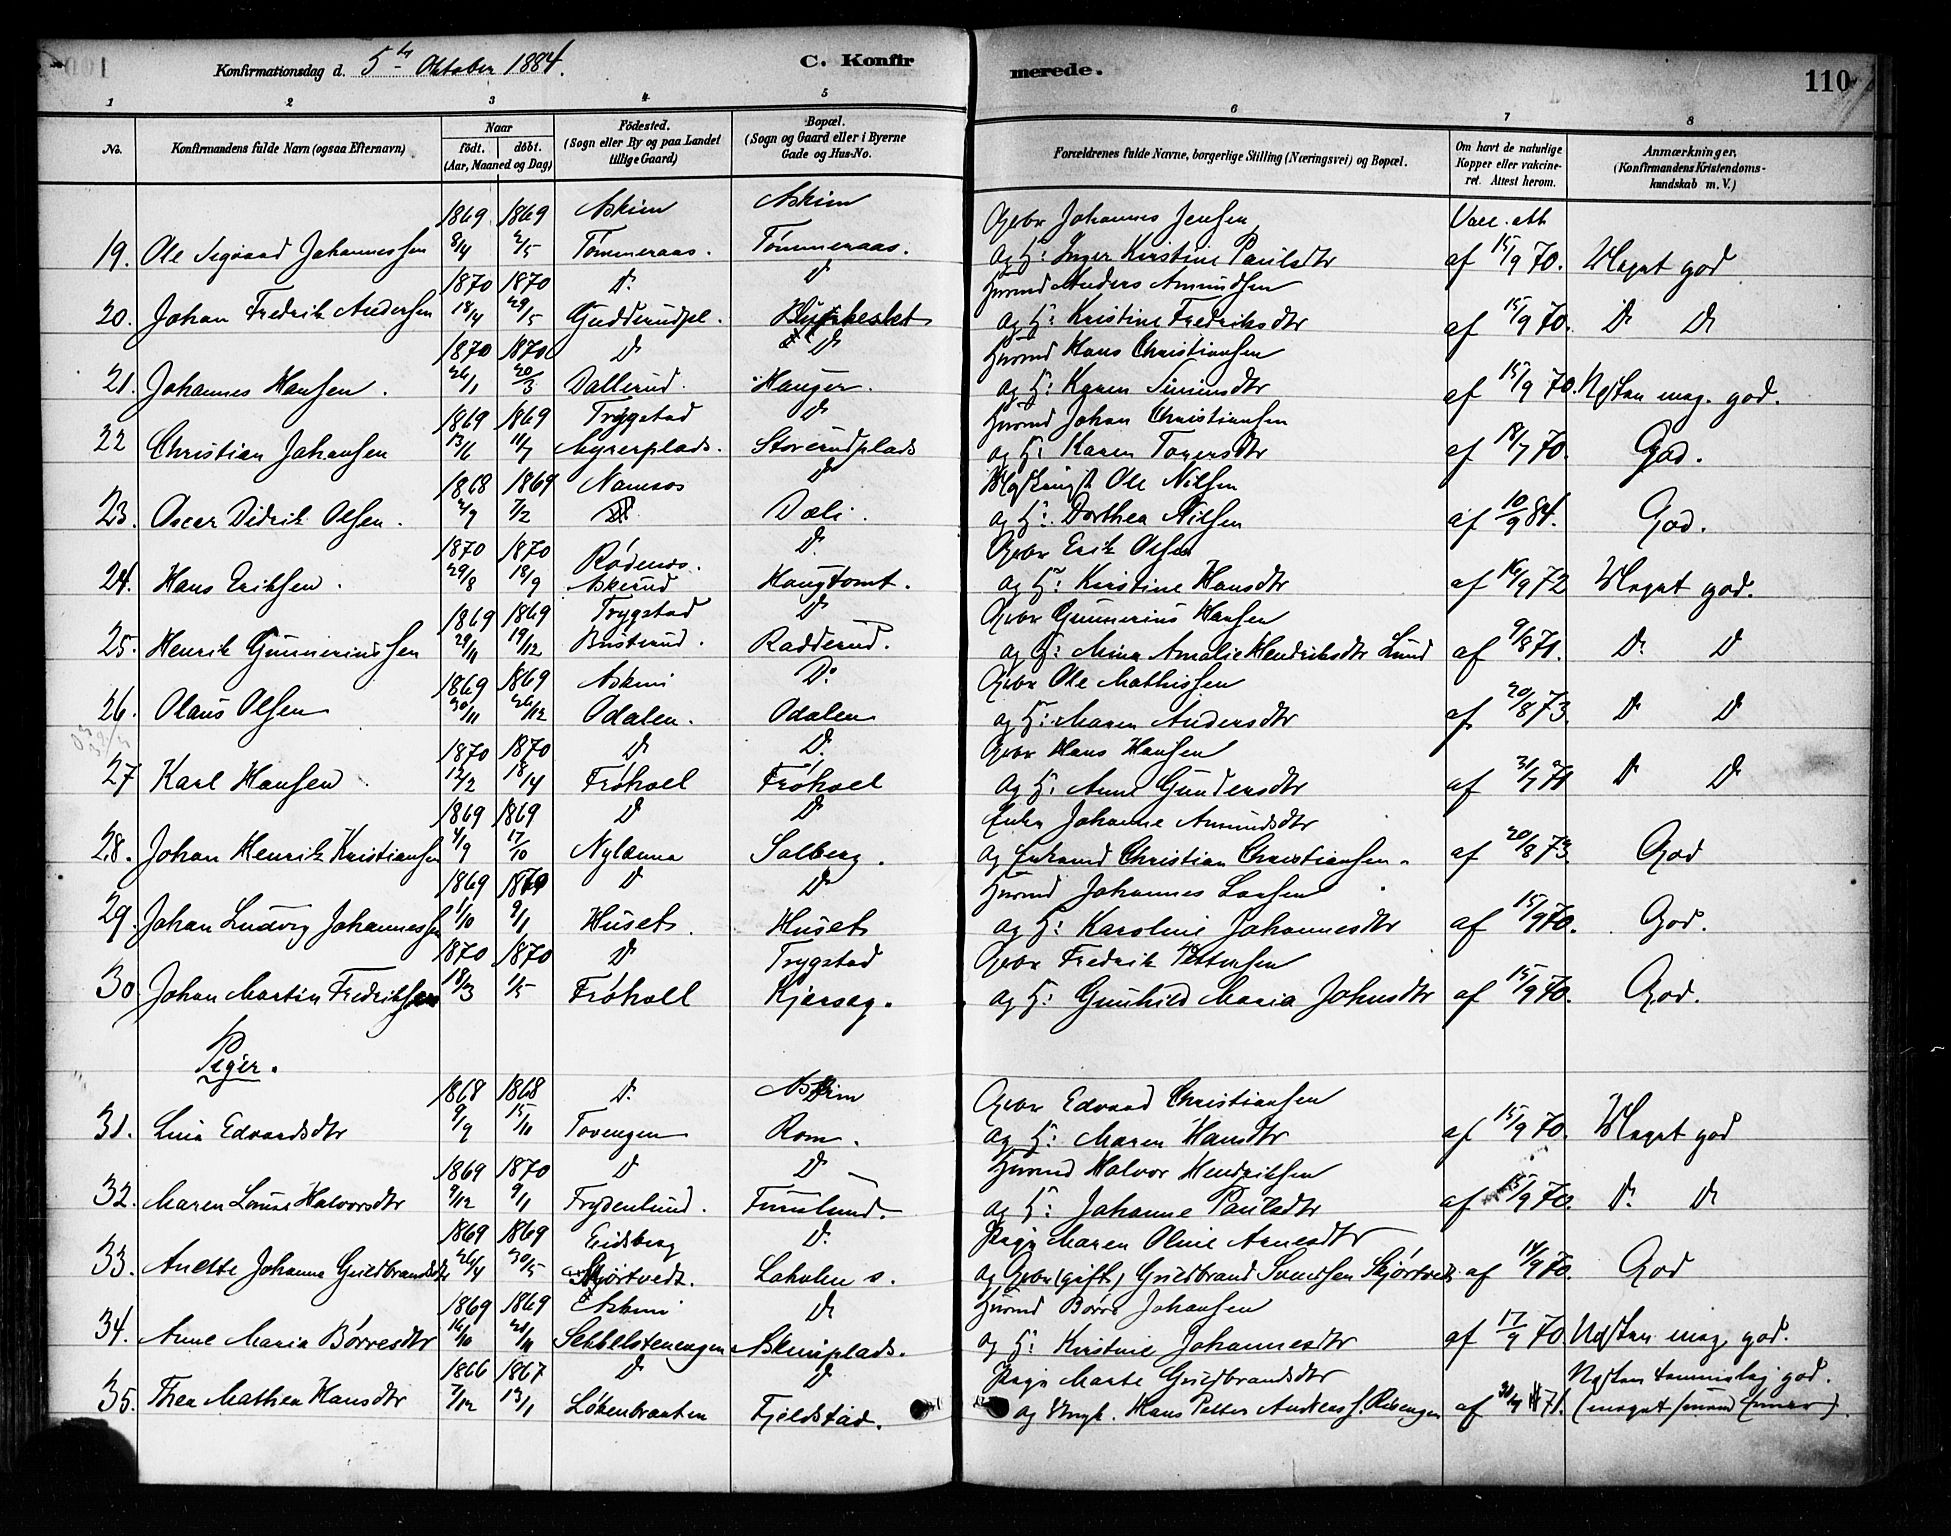 Konfirmationsdag d. 5te Oktober 1884.
C. Konfirmerede.
110
1 2 3 4 5 6 7 8
No.
Konfirmandens fulde Navn (ogsaa Efternavn)
Naar
födt. döbt.
(Aar, Maaned og Dag)
Födested.
(Sogn eller By og paa Landet
tillige Gaard)
Bopæl.
(Sogn og Gaard eller i Byerne
Gade og Hus-No.
Forældrenes fulde Navne, borgerlige Stilling (Næringsvei) og Bopæl.
Om havt de naturlige
Kopper eller vakcine-
ret. Attest herom.
Anmærkninger,
(Konfirmandens Kristendoms-
kundskab m. V.)
1869 1869 Askim Askim Gbr Johannes Jensen Vacc. att
19. Ole Sigvard Johannessen 8/4 2/5 Tömmeraas. Tömmeraas. og H: Inger Kirstine Paulsdtr af 15/9 70. Meget god
1870 1870 D. D Husmd Anders Amundsen
20. Johan Fredrik Andersen 18/4 29/5 Gudderudpl. og H: Kristine Fredriksdtr af 15/9 70. D. D
1870 1870 D D Husmd Hans Christiansen
21. Johannes Hansen. 26/1 20/3 Dallerud. Hauger. og H: Karen Simensdtr af 15/9 70. Næsten meg. god.
1869 1869 Trygstad D Husmd Johan Christiansen
22 Christian Johansen 13/6 11/7 Myrerplads. Storerudplads og H: Karen Torersdtr af 18/7 70. God.
1868 1869 Namsos D Ole Nilsen
23. Oscar Didrik Olsen. 2/9 7/2 Dæli. og H: Dorthea Nilsen af 10/9 84. God.
1870 1870 Rödenes. D. Gbr Erik Olsen
24. Hans Eriksen. 29/8 18/9 Askerud Haugtomt. og H: Kirstine Hansdtr af 16/9 72 Meget god.
1869 1869 Trygstad D Gbr Gunnerius Hansen
25. Henrik Gunneriussen 29/11 19/12 Busterud. Radderud. og H: Mina Amalie Hendriksdtr Lund af 9/8 71. D. D
1869 1869 Askim D: Gbr Ole Mathissen
26. Olaus Olsen 30/11 26/12 Odalen. Odalen og H: Maren Andersdtr af 20/8 73. D D
1870 1870 D D. Gbr Hans Hansen
27 Karl Hansen 12/2 18/4 Fröhoel Fröhoel og H: Anne Gundersdtr af 31/7 71 D D
1869 1869 D D Enke Johanne Amundsdtr
28. Johan Henrik Kristiansen 4/9 17/10 Nylænna Solberg. og Enkemd Christian Christiansen. af 20/8 73. God
1869 1870 D D Husmd Johannes Larsen
29. Johan Ludvig Johannessen 1/10 9/1 Huset. Huset og H: Karoline Johannesdtr af 15/9 70. God.
1870 1870 D Trygstad Gbr Fredrik Pettersen
30 Johan Martin Fredriksen 18/3 1/5 Fröhoel Kjærsag. og H: Gunhild Maria Johnsdtr af 15/9 70. God.
Piger.
1868 1868 D. Askim Gbr Edvard Christiansen
31. Lina Edvardsdtr 9/9 15/11 Tovengen Rom. og H: Maren Hansdtr af 15/9 70. Meget god
1869 1870 D D Husmd Halvor Hendriksen
32. Maren Louise Halvorsdtr 9/12 9/1 Frydenlund. Furulund. og H: Johanne Paulsdtr af 15/9 70. D. D
1869 1869 Eidsberg D. Pige Maren Oline Arnesdtr
33. Anette Johanna Guldbrandsdtr 26/4 30/5 Skjörtvedt. Laholen s. og Gbr (gift) Guldbrand Svendsen Skjörtvedt af 14/9 70. God
1869 1869 Askim D Husmd Börre Johansen
34. Anne Maria Börresdtr 16/10 21/11 Sekkelstenengen Askimplads. og H: Kirstine Johannesdtr af 17/9 70 Næsten meg god.
1866 1867 D D Pige Marte Guldbrandsdtr Næsten temmelig god.
35. Thea Mathea Hansdtr 7/12 13/1 Lökenbraaten Fjeldstad. og Ungk. Hans Petter Andreas s. Risengen af 30/9 71. (meget